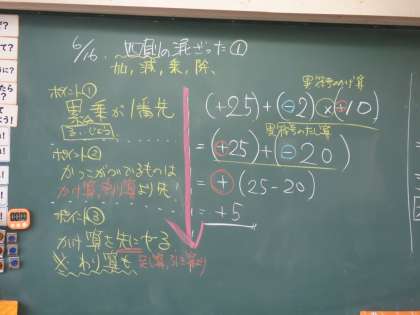 6/16. 四則の混ざった①
加、減、乗、除、
ポイント①
累乗が1番先
るいじょう
ポイント②
かっこがついているものは
かけ算、わり算より先
ポイント③
かけ算を先にやる
※わり算も
足し算、引き算より
異符号のかけ算
(+25)+(-2)×(+10)
異符号のたし算
=(+25)+(-20)
=+(25-20)
=+5